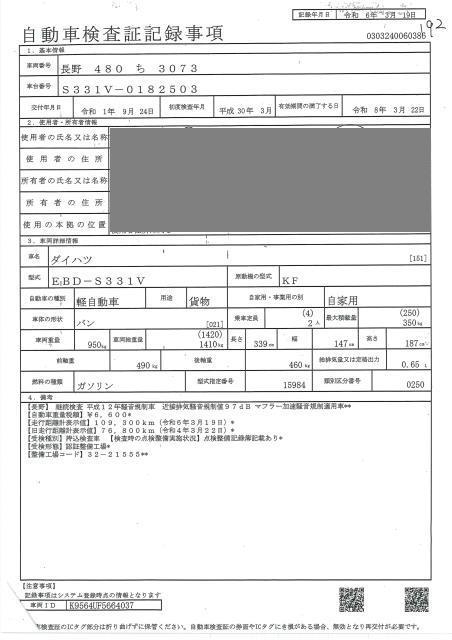 記録年月日 令和 6年 3月 19日
192
自動車検査証記録事項
0303240060386
1. 基本情報
車両番号 長野 480 ち 3073
車台番号 S331V-0182503
交付年月日 令和 1年 9月 24日 初度検査年月 平成 30年 3月 有効期間の満了する日 令和 8年 3月 22日
2. 使用者・所有者情報
使用者の氏名又は名称
使用者の住所
所有者の氏名又は名称
所有者の住所
使用の本拠の位置
3. 車両詳細情報
車名 ダイハツ [151]
型式 EBD-S331V 原動機の型式 KF
自動車の種別 軽自動車 用途 貨物 自家用・事業用の別 自家用
車体の形状 バン [021] 乗車定員 (4) 2人 最大積載量 (250) 350kg
車両重量 950kg 車両総重量 (1420) 1410kg 長さ 339cm 幅 147cm 高さ 187cm
前軸重 490kg 後軸重 460kg 総排気量又は定格出力 0.65 L
燃料の種類 ガソリン 型式指定番号 15984 類別区分番号 0250
4. 備考
【長野】 継続検査 平成12年騒音規制車 近接排気騒音規制値97dB マフラー加速騒音規制適用車**
【自動車重量税額】¥6,600*
【走行距離計表示値】109,300km(令和6年3月19日)*
【旧走行距離計表示値】76,800km(令和4年3月22日)*
【受検種別】持込検査車 【検査時の点検整備実施状況】点検整備記録簿記載あり*
【受検形態】認証整備工場*
【整備工場コード】32-21555**
【注意事項】
記録事項はシステム登録時点の情報となります
車両ID K9564UF5664037
車検査証のICタグ部分は折り曲げずに保管ください。自動車検査証の券面やICタグにき損がある場合、無効となり再交付が必要です。